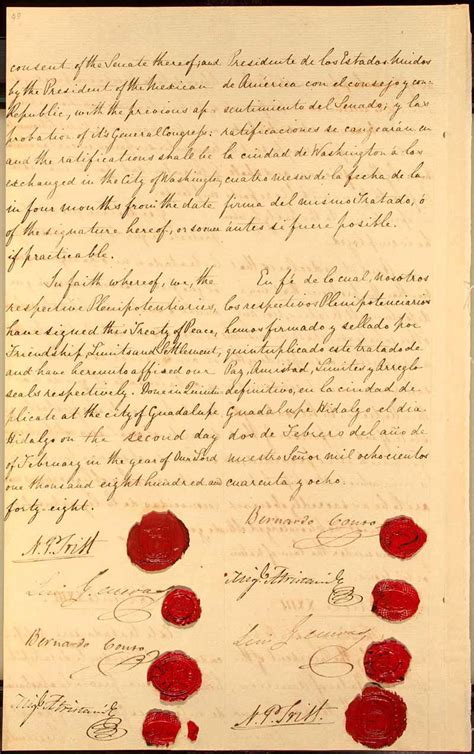 consent of the Senate thereof; and
by the President of the Mexican
Republic, with the previous ap
probation of its General Congress:
and the ratifications shall be
exchanged in the City of Washington,
in four months from the date
of the signature hereof, or sooner
if practicable.
In faith whereof, we, the
respective Plenipotentiaries,
have signed this Treaty of Peace,
Friendship, Limits and Settlement,
and have hereunto affixed our
seals respectively. Done in Quintu
plicate at the city of Guadalupe
Hidalgo on the second day
of February in the year of Our Lord
one thousand eight hundred and
forty-eight.
N. P. Trist
Luis G. Cuevas
Bernardo Couto
Migl Atristain
Presidente de los Estados Unidos
de América con el consejo y con
sentimiento del Senado; y las
ratificaciones se cangearán en
la ciudad de Washington a los
cuatro meses de la fecha de la
firma del mismo Tratado, ó
ántes si fuere posible.
En fé de lo cual, nosotros
los respectivos Plenipotenciarios
hemos firmado y sellado por
quintuplicado este tratado de
Paz, Amistad, Límites y Arreglo
definitivo, en la ciudad de
Guadalupe Hidalgo el dia
dos de Febrero del año de
nuestro Señor mil ochocientos
cuarenta y ocho.
Bernardo Couto
Migl Atristain
Luis G. Cuevas
N. P. Trist